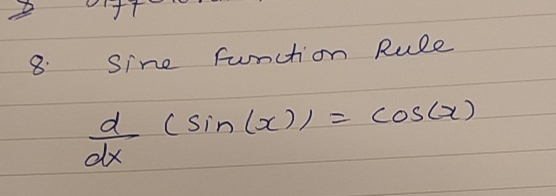 8. Sine Function Rule
d/dx (sin(x)) = cos(x)